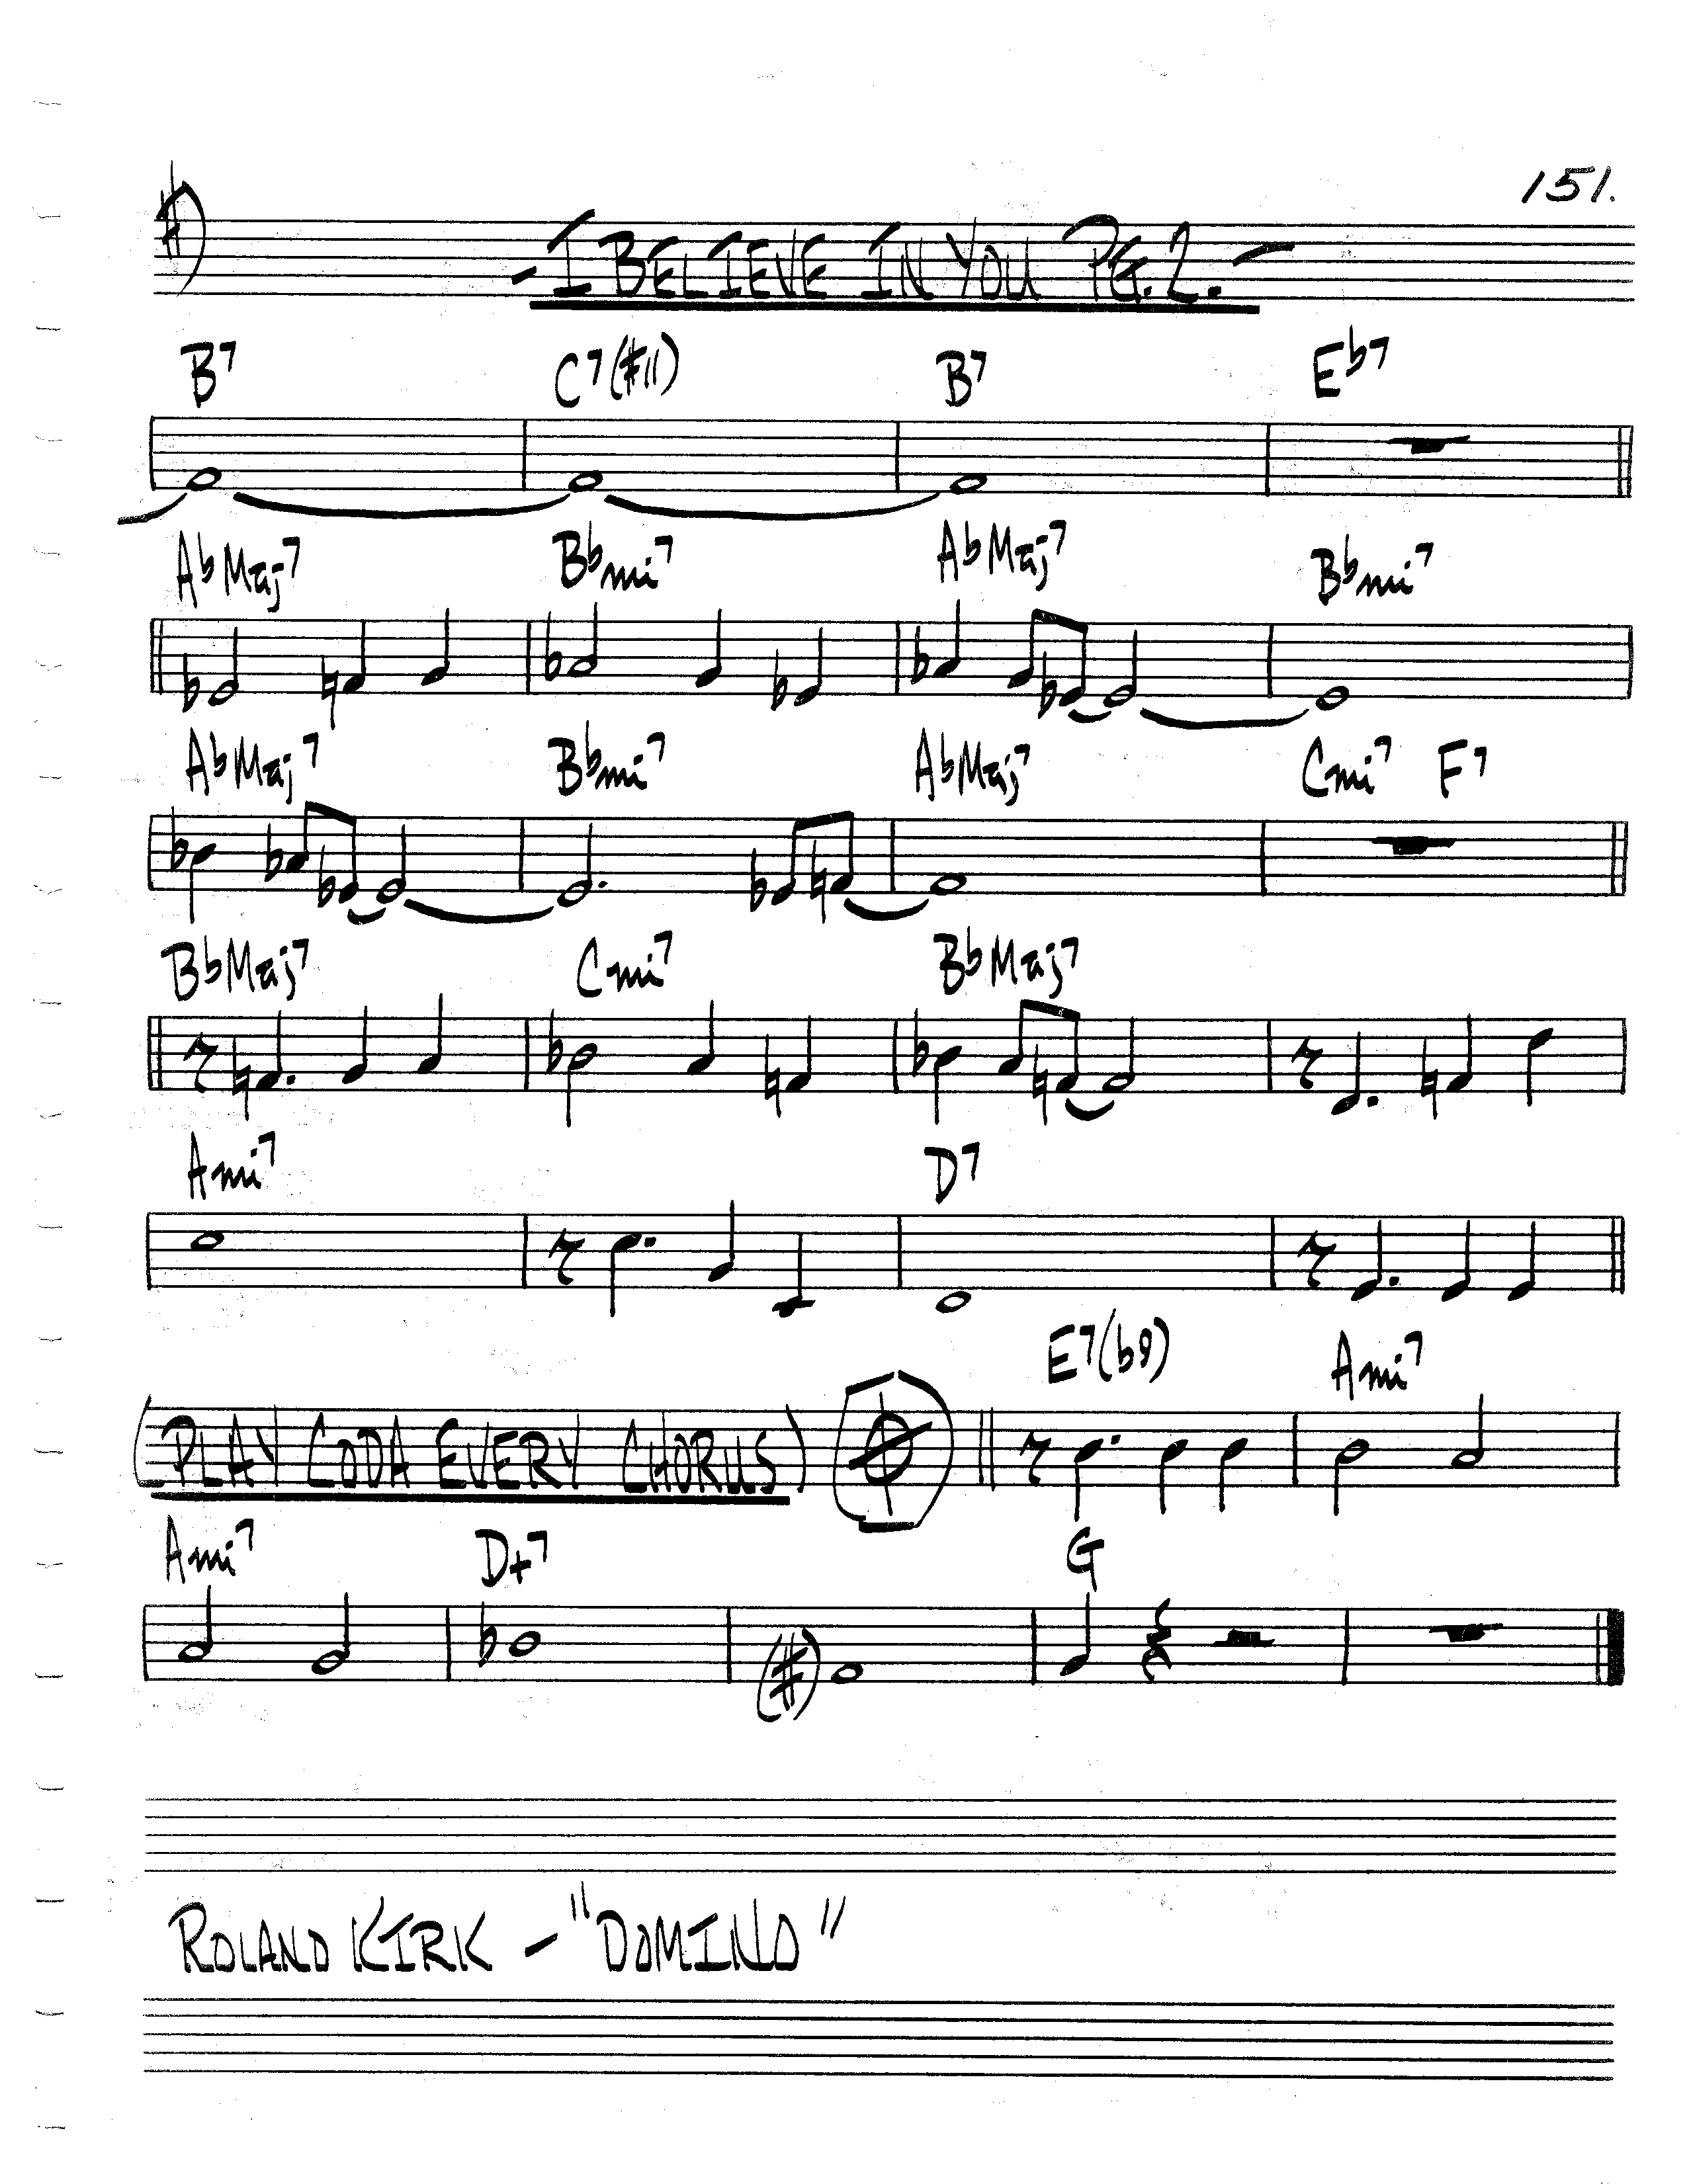 151.
- I BELIEVE IN YOU PG. 2. -
B7 C7(#11) B7 Eb7
AbMaj7 Bbmi7 AbMaj7 Bbmi7
AbMaj7 Bbmi7 AbMaj7 Cmi7 F7
BbMaj7 Cmi7 BbMaj7
Ami7 D7
E7(b9) Ami7
(PLAY CODA EVERY CHORUS)
Ami7 D+7 G
(#)
ROLAND KIRK - "DOMINO"